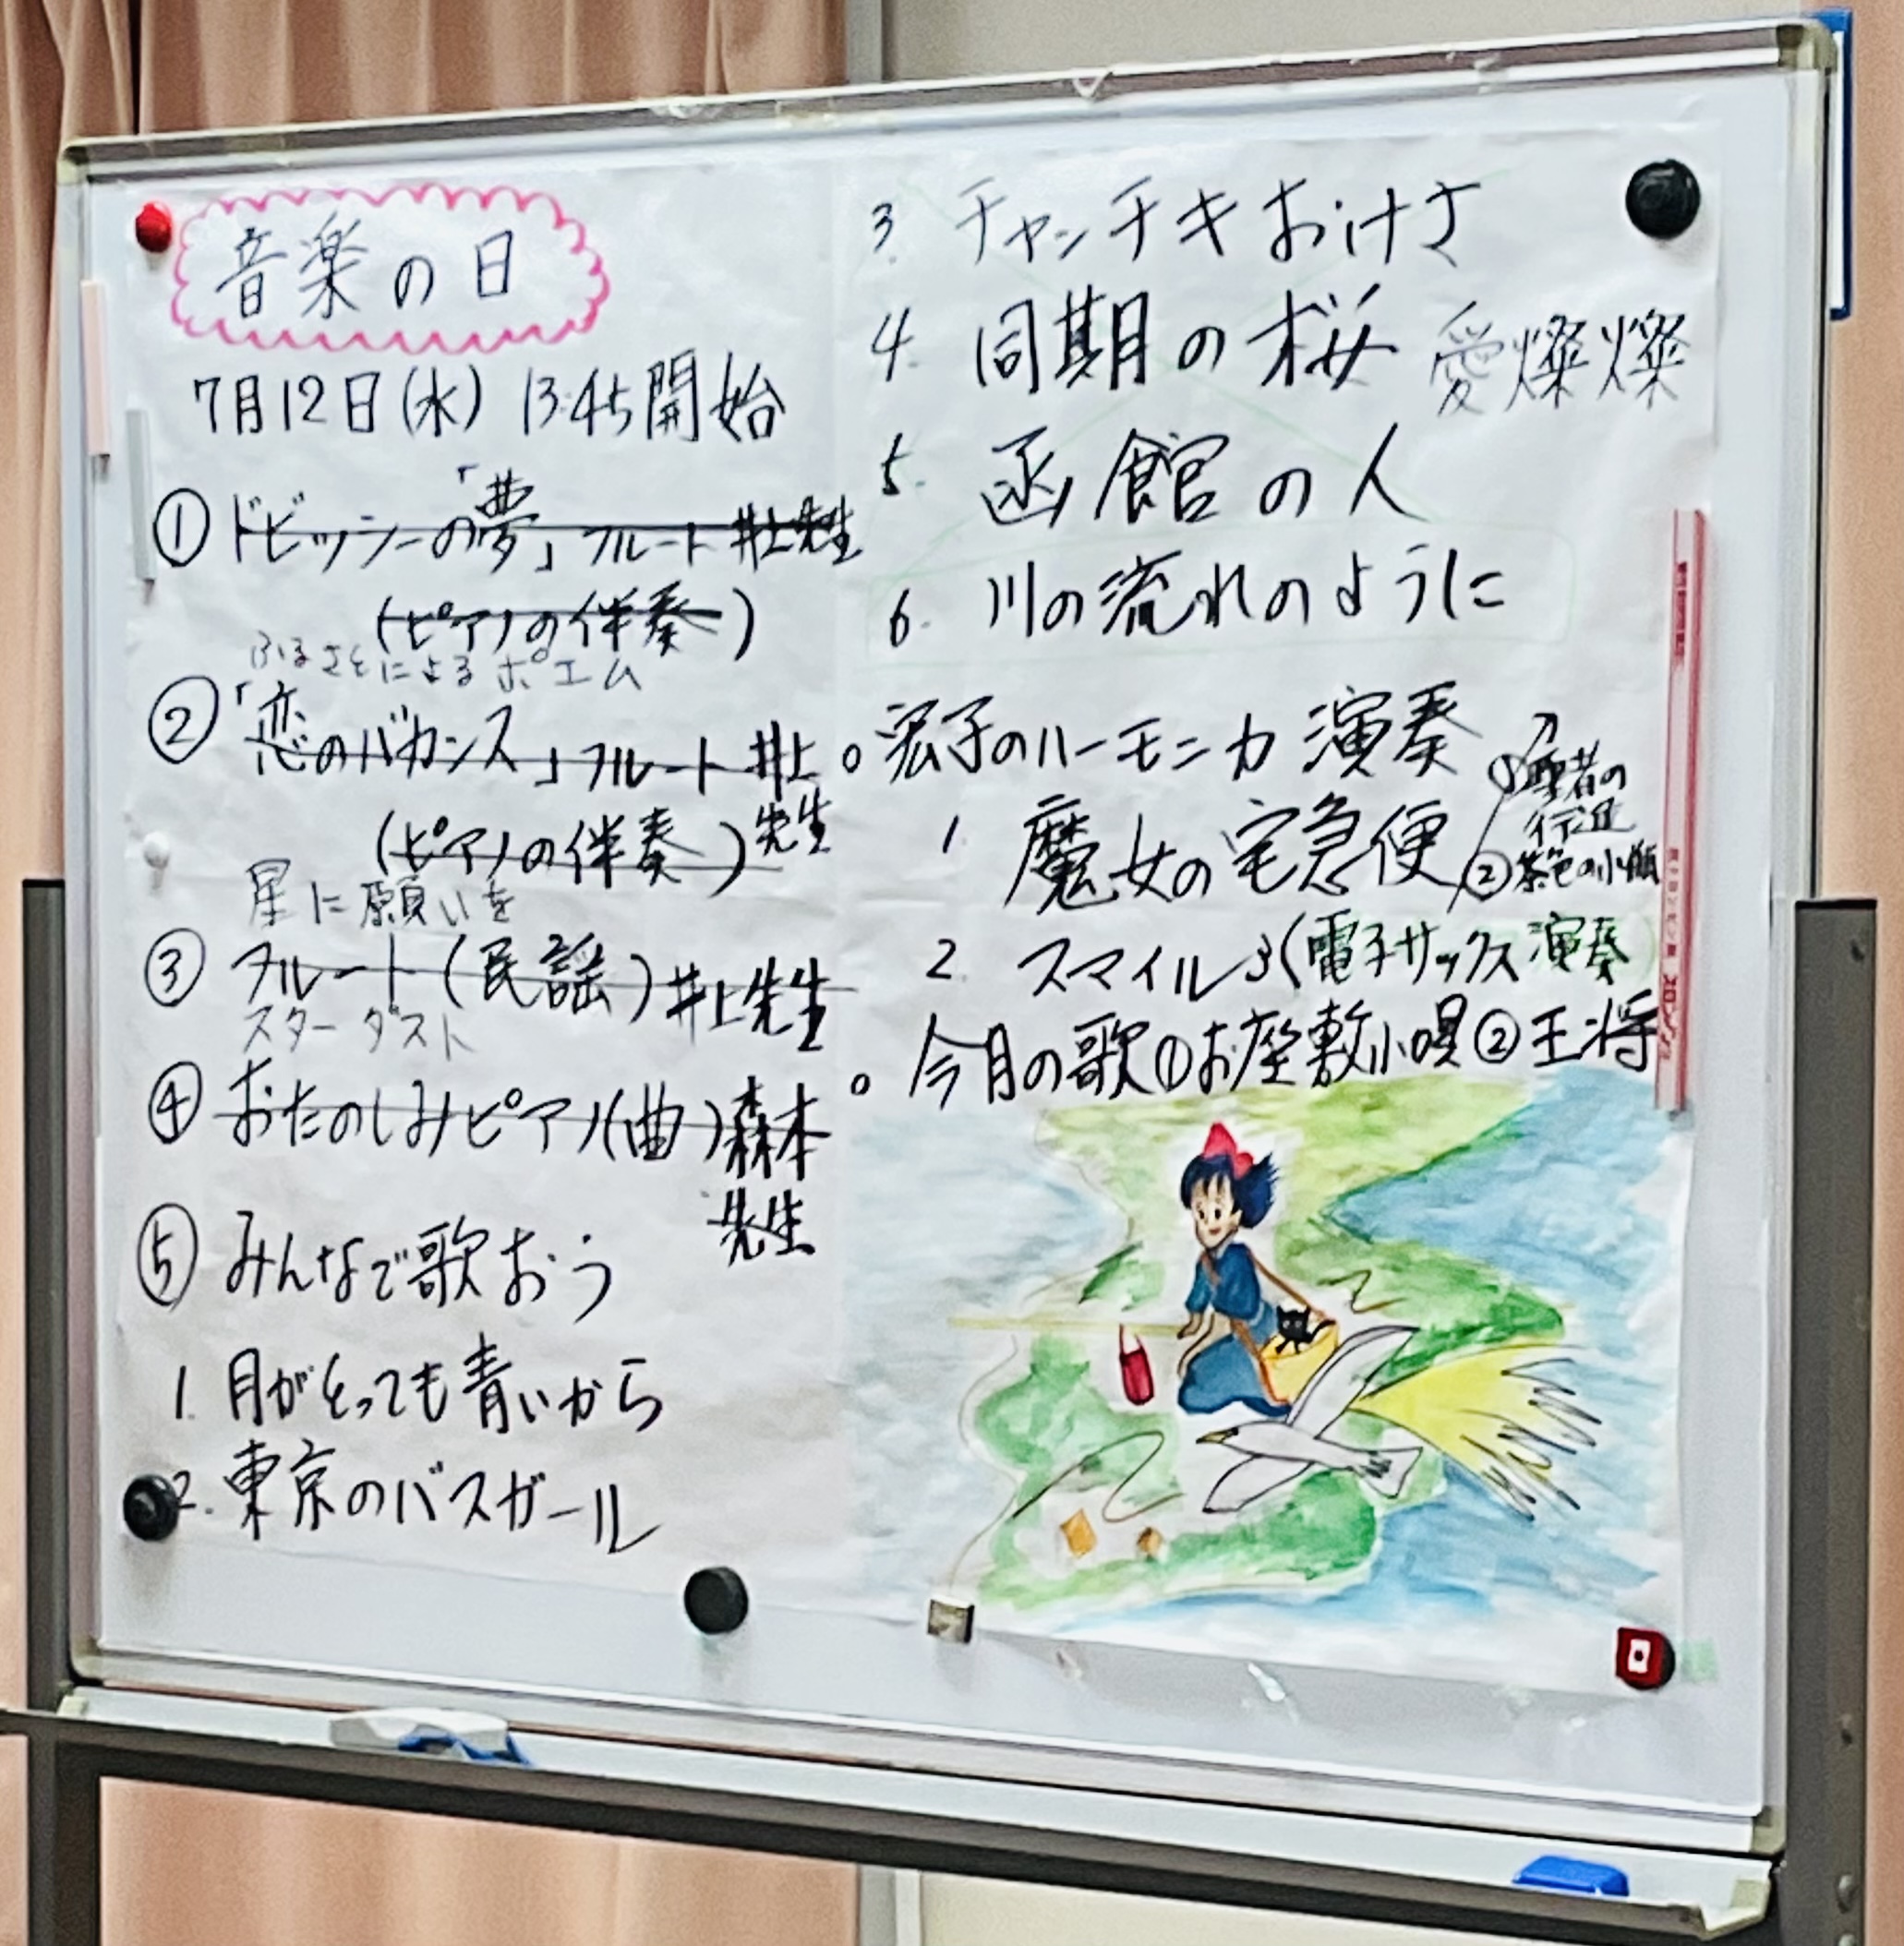 音楽の日
7月12日(水) 13:45開始
① ドビッシーの「夢」フルート 井上先生
(ピアノの伴奏)
ふるさとによるポエム
② 「恋のバカンス」フルート 井上先生
(ピアノの伴奏)
星に願いを
③ フルート(民謡)井上先生
スターダスト
④ おたのしみピアノ(曲)森本先生
⑤ みんなで歌おう
1. 月がとっても青いから
2. 東京のバスガール
3. チャンチキおけさ
4. 同期の桜 愛燦燦
5. 函館の人
6. 川の流れのように
○ 宏子のハーモニカ演奏
1. 魔女の宅急便
①聖者の
行進
②茶色の小瓶
2. スマイル (電子サックス演奏
○ 今月の歌①お座敷小唄②王将